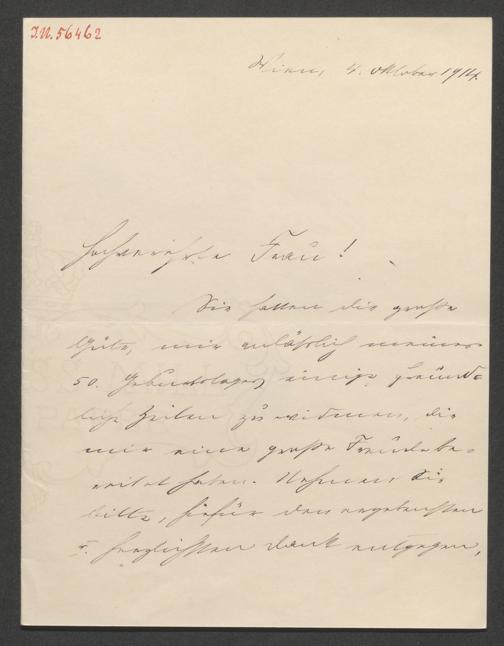 I.N. 56462
Wien, 4. Oktober 1914.
Hochverehrte Frau!
Sie hatten die große
Güte, mir anläßlich meines
50. Geburtstages einige freund-
liche Zeilen zu widmen, die
mir eine große Freude be-
reitet haben. Nehmen Sie
bitte, hiefür den ergebensten
u. herzlichsten Dank entgegen,